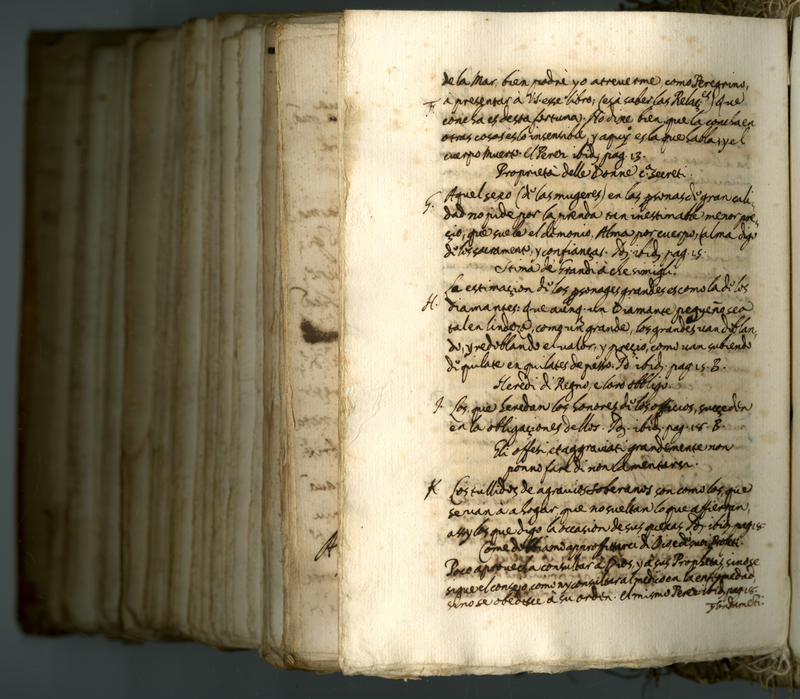 de la Mar. bien podrè yo atreuerme, como Peregrino,
à presentar à V.S. esse libro, (es à saber las Relaç.es) que
concha es desta fortuna. No dixe bien, que la concha en
otras cosas es lo insensible, y aquy es la que habla, y el
cuerpo muerto. El Perez ibid. pag. 13.
Proprietà delle Donne e secreti.
G. Aquel sexo (de las mugeres) en las psonas de gran cali
dad no pide por la prenda tan inestimable menor pre
çio, que suele el demonio. Alma por cuerpo, (alma digo
de los sacramento, y confianças. Id. ibid. pag. 15.
Stima de Grandi à che simigli.
H. La estimaçion de los psonages grandes es como la de los
diamantes. Que aunq. un Diamante pequeño sea
tal en lindeza, como un grande, los grandes uan doblan
do, y redoblando el ualor, y preçio, como uan subiendo
de quilate en quilates de peso. Id. ibid. pag. 15. B.
Heredi di Regno, e loro obbligo.
I. Los que heredan los honores de los officios, succeden
en la obligaçiones dellos. Id. ibid. pag. 18. B.
Gli offesi, et aggrauati grandemente non
ponno fare di non lamentarsi.
K Los tullidos de agrauios soberanos son como los que
se uan à ahogar, que no sueltan lo que affierran,
assy los que digo la occasion de sus quexas. Id. ibid. pag. 18.
Come dobbiamo approffittarci di Dio e de suoi Profeti.
Poco aprouecha consultar à Dios, y à sus Prophetas, si no se
sigue el consejo, como ny consultar al medico en la enfermedad
si no se obedesce à su orden. El mismo Perez ibid. pag. 18.